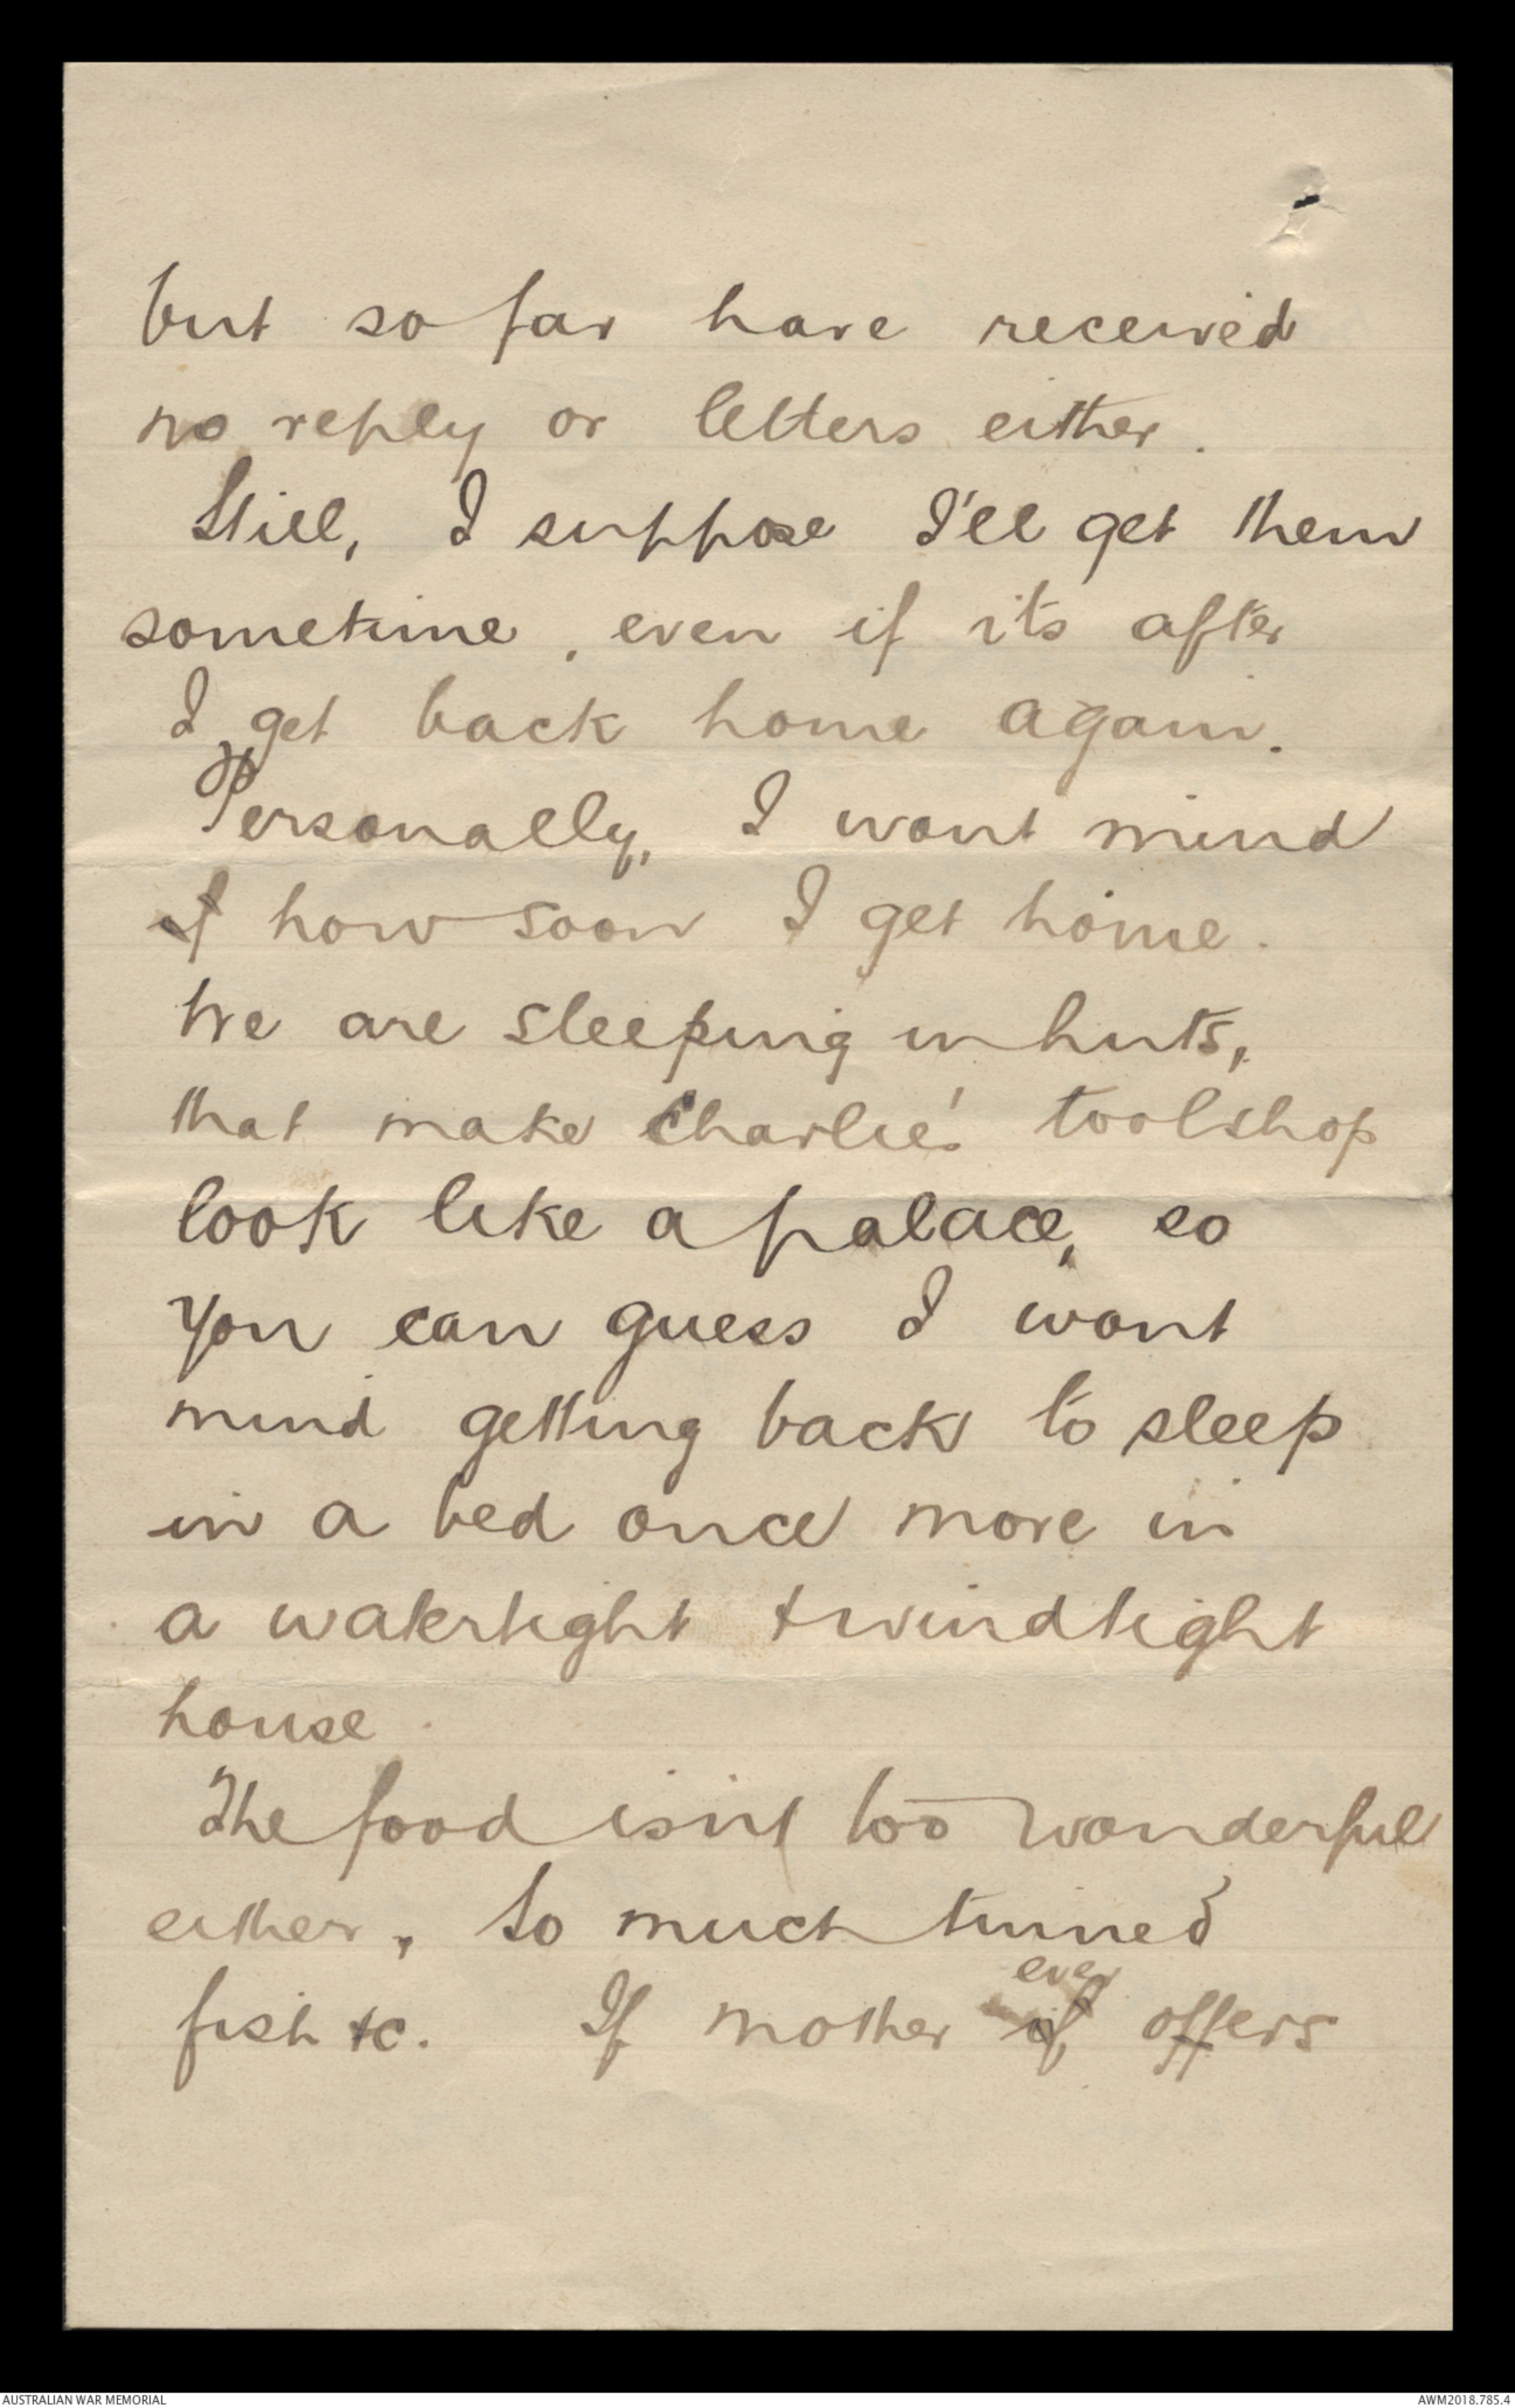 but so far have received
no reply or letters either.
Still, I suppose I'll get them
sometime, even if its after
I get back home again.
Personally, I wont mind
if how soon I get home.
We are sleeping in huts,
that make Charlie's toolshop
look like a palace, so
you can guess I wont
mind getting back to sleep
in a bed once more in
a watertight & windtight
house.
The food isn't too wonderful
either, so much tinned
fish &c. If mother if ever offers
AUSTRALIAN WAR MEMORIAL
AWM2018.785.4